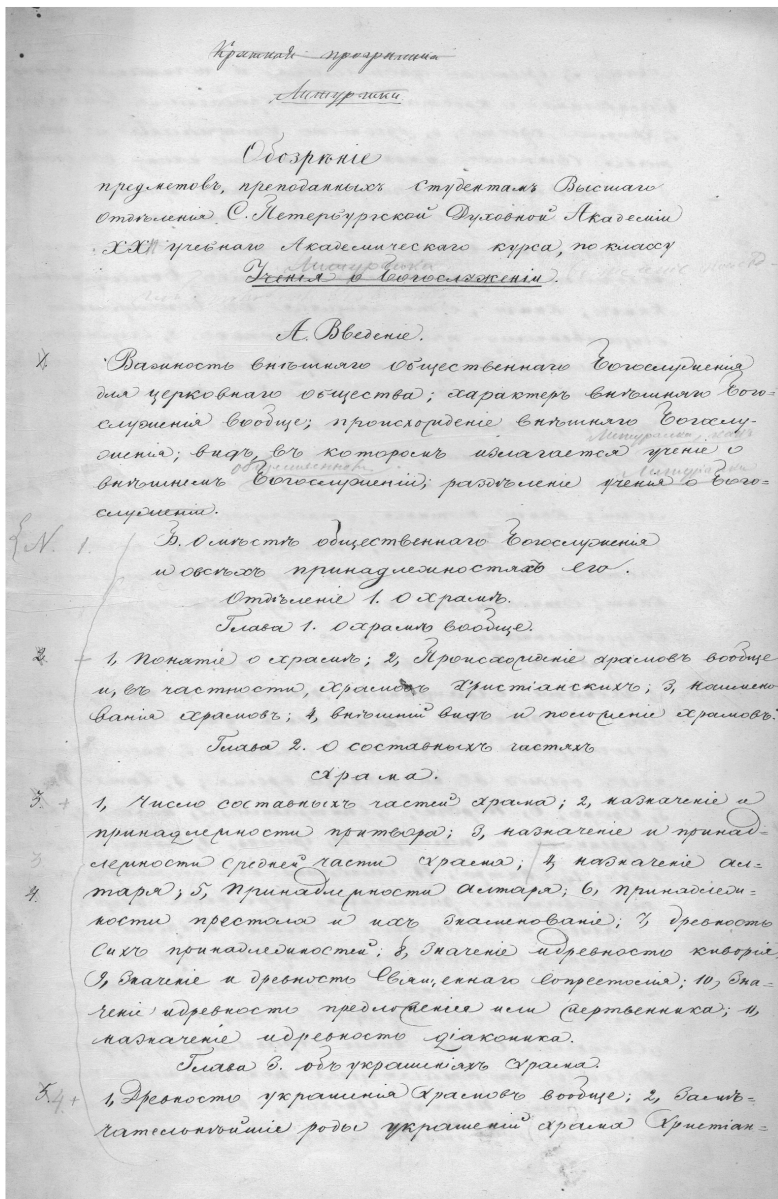 Краткая программа
Литургики
Обозрѣніе
предметовъ, преподанныхъ студентамъ Высшаго
отдѣленія С. Петербургской Духовной Академіи
XXII учебнаго Академическаго курса, по классу
Литургика
Ученія о Богослуженіи.
А. Введеніе.
1. Важность внѣшняго общественнаго Богослуженія
для церковнаго общества; характеръ внѣшняго Бого-
служенія вообще; происхожденіе внѣшняго Богослу-
Литургика, какъ
женія; видъ, въ которомъ излагается ученіе о
Литургики
внѣшнемъ Богослуженіи; раздѣленіе ученія о Бого-
служеніи.
N. 1.
Б. О мѣстѣ общественнаго Богослуженія
и о всѣхъ принадлежностяхъ его.
Отдѣленіе 1. О храмѣ.
Глава 1. О храмѣ вообще.
2. + 1, Понятіе о храмѣ; 2, Происхожденіе храмовъ вообще
и, въ частности, храмовъ Христіанскихъ; 3, наимено
ванія храмовъ; 4, внѣшній видъ и положеніе храмовъ.
Глава 2. О составныхъ частяхъ
храма.
3. + 1, Число составныхъ частей храма; 2, назначеніе и
принадлежности притвора; 3, назначеніе и принад-
3 лежности средней части храма; 4, назначеніе ал-
4. таря; 5, Принадлежности алтаря; 6, принадлеж-
ности престола и ихъ знаменованіе; 7, древность
сихъ принадлежностей; 8, Значеніе и древность киворія;
9, Значеніе и древность Священнаго сопрестолія; 10, Зна-
ченіе и древность предложенія или жертвенника; 11,
назначеніе и древность діаконика.
Глава 3. Объ украшеніяхъ храма.
5. 4 + 1, Древность украшенія храмовъ вообще; 2, Замѣ-
чательнѣйшіе роды украшеній храма Христіан-